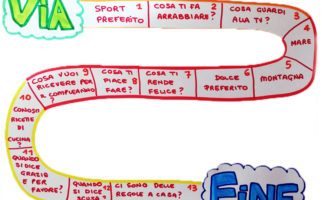 VIA
SPORT 1
PREFERITO
COSA TI FA 2
ARRABBIARE?
COSA GUARDI 3
ALLA TV?
4
MARE
5
MONTAGNA
DOLCE 6
PREFERITO
COSA TI 7
RENDE
FELICE?
COSA TI 8
PIACE
FARE?
COSA VUOI 9
RICEVERE PER
IL COMPLEANNO
?
10
CONOSCI
RICETTE DI
CUCINA
?
11
QUANDO
SI DICE
GRAZIE
E PER
FAVORE?
QUANDO 12
SI DICE
SCUSA?
CI SONO DELLE 13
REGOLE A CASA?
FINE